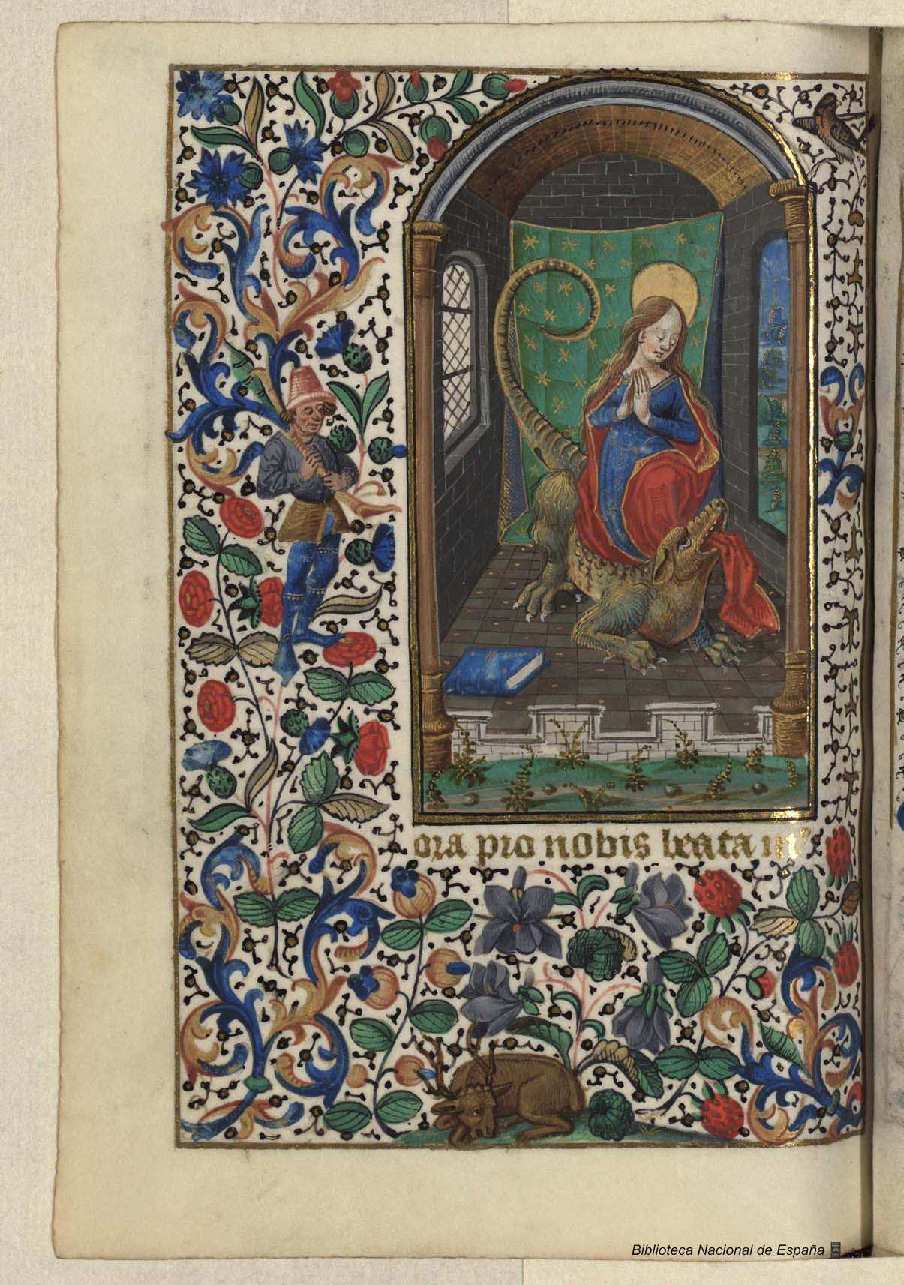 ora pro nobis beata
Biblioteca Nacional de España